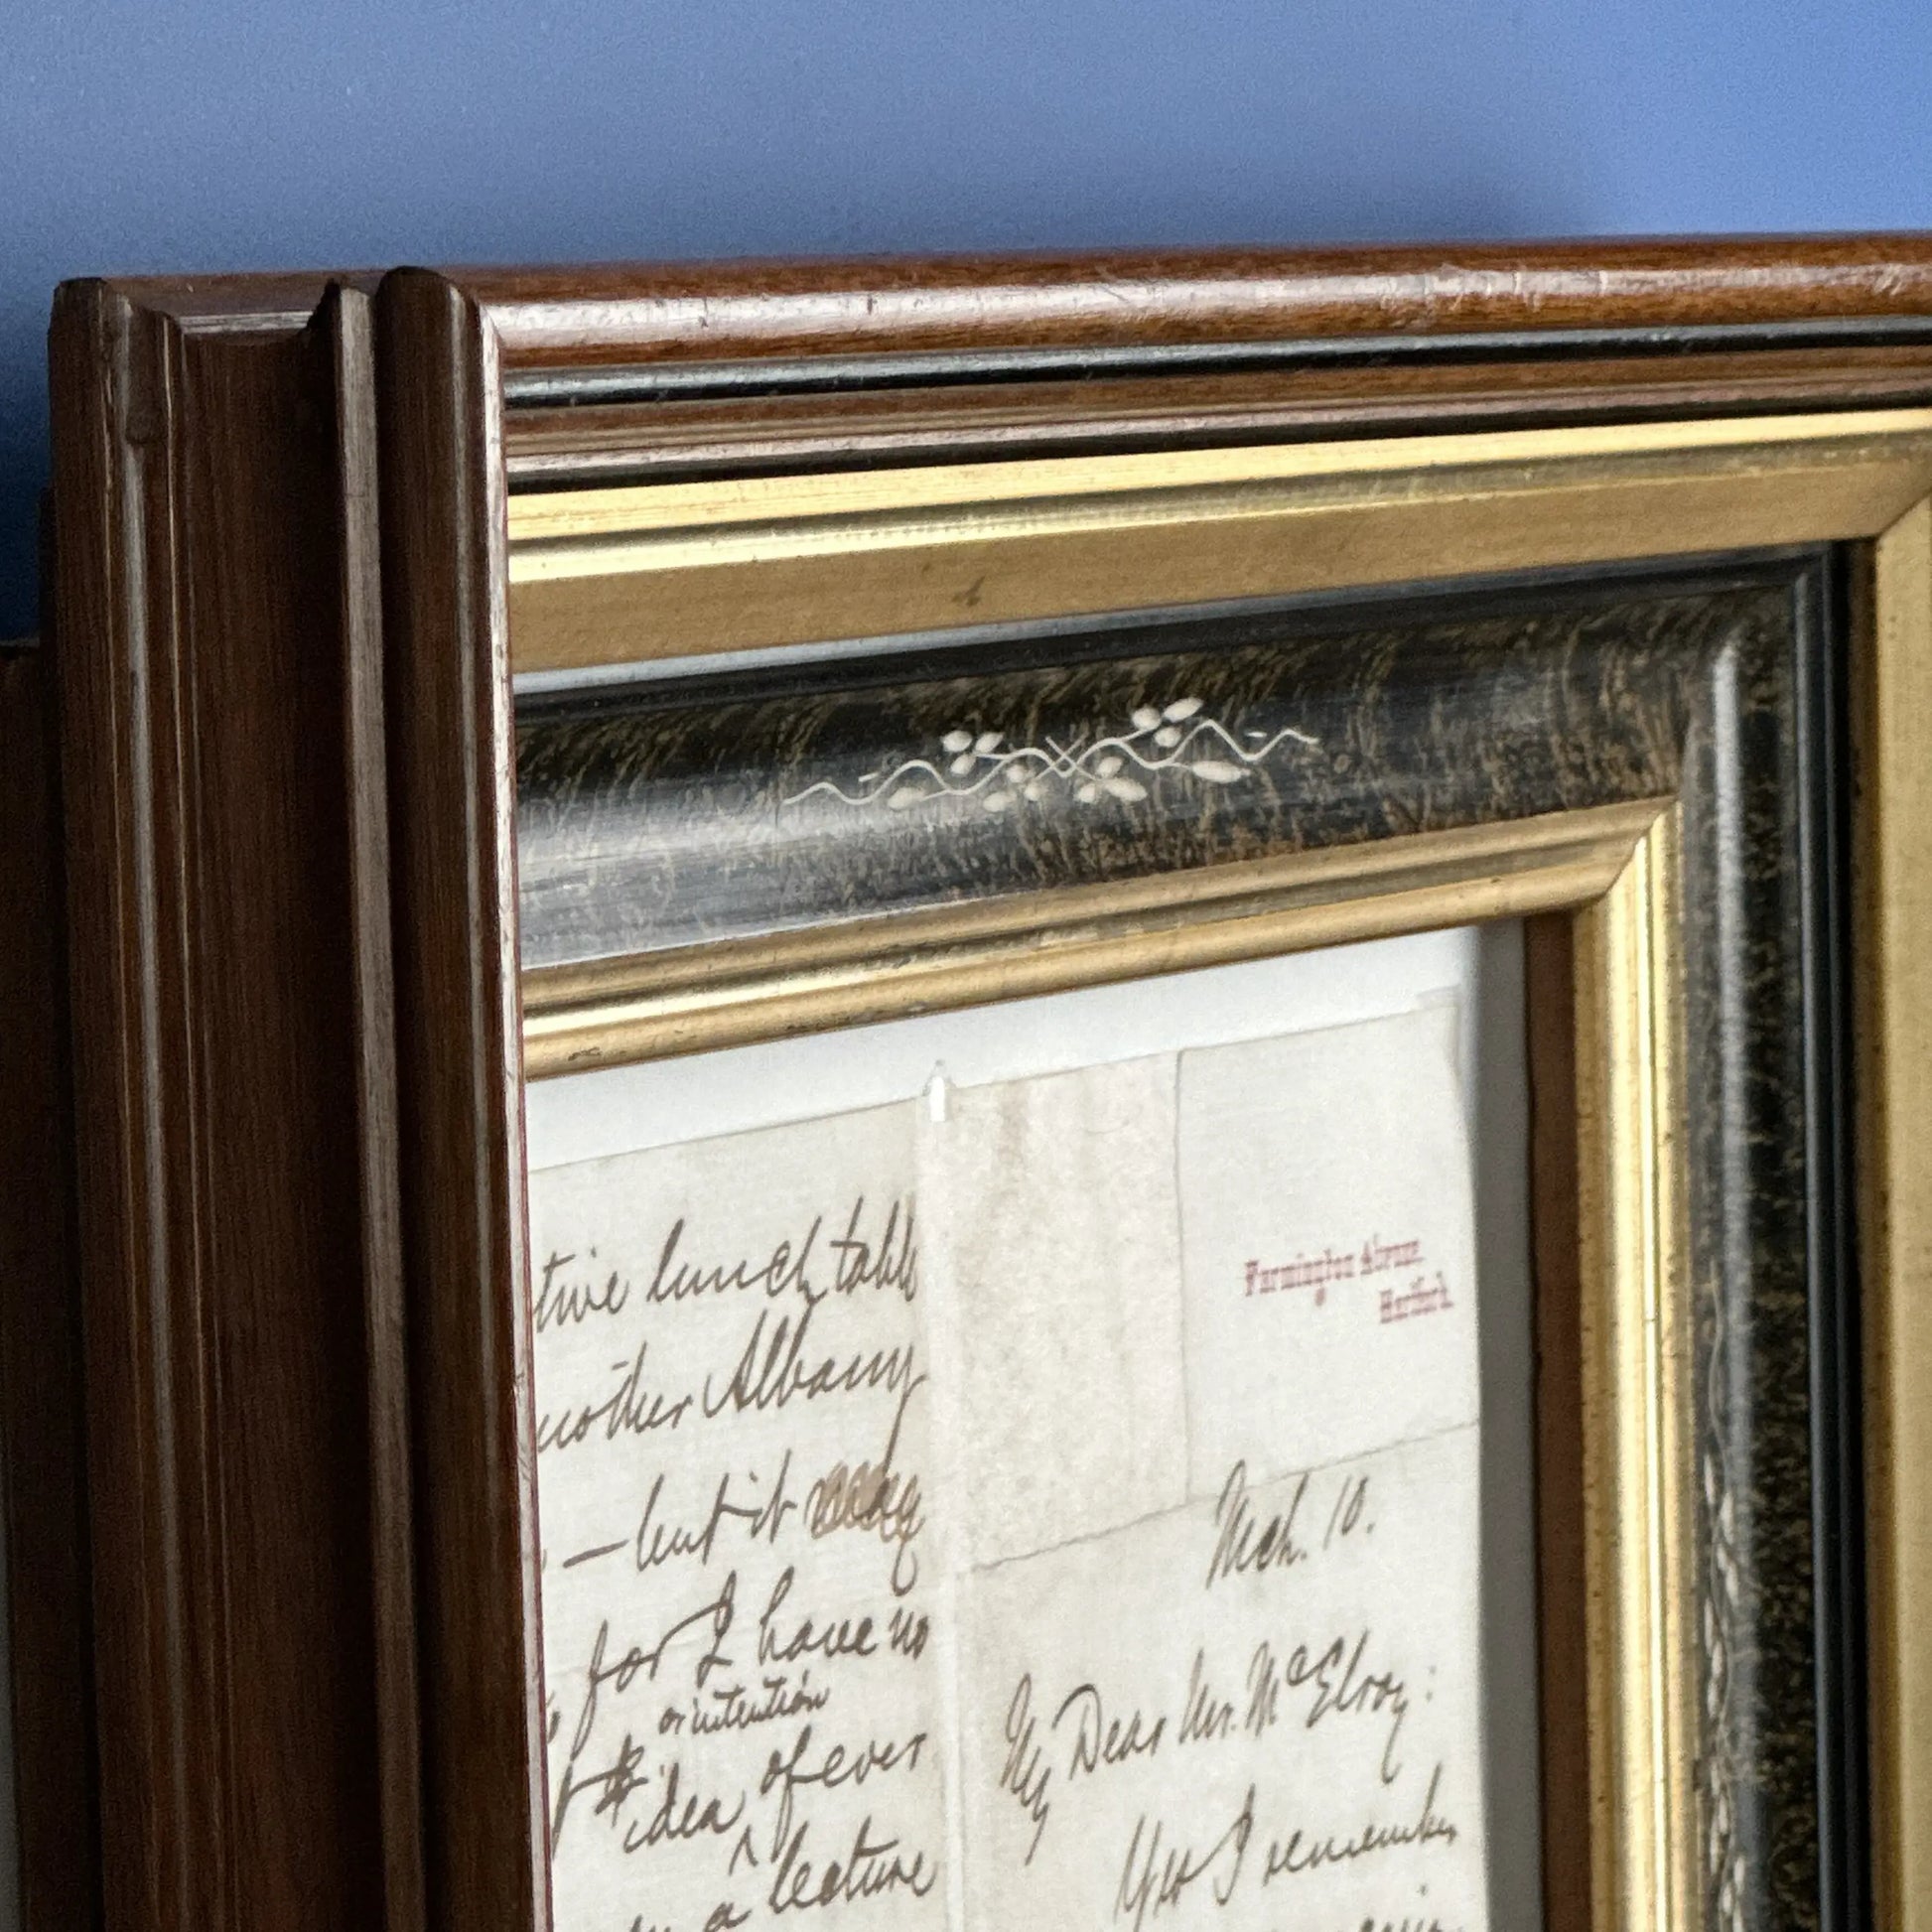 tive lunch table
nother Albany
— but it may
for I have no
or intention
idea of ever
a lecture
Farmington Avenue,
Hartford.
Mch. 10.
My Dear Mr. McElroy:
Yes I remember